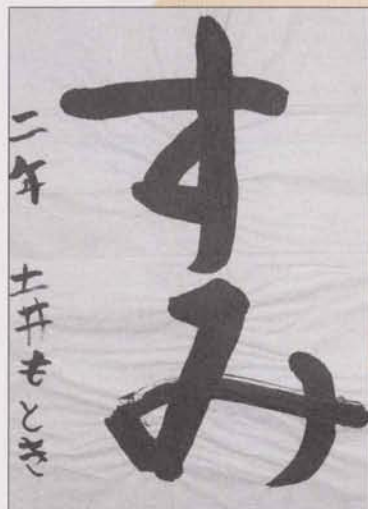 すみ
二年 土井もとき